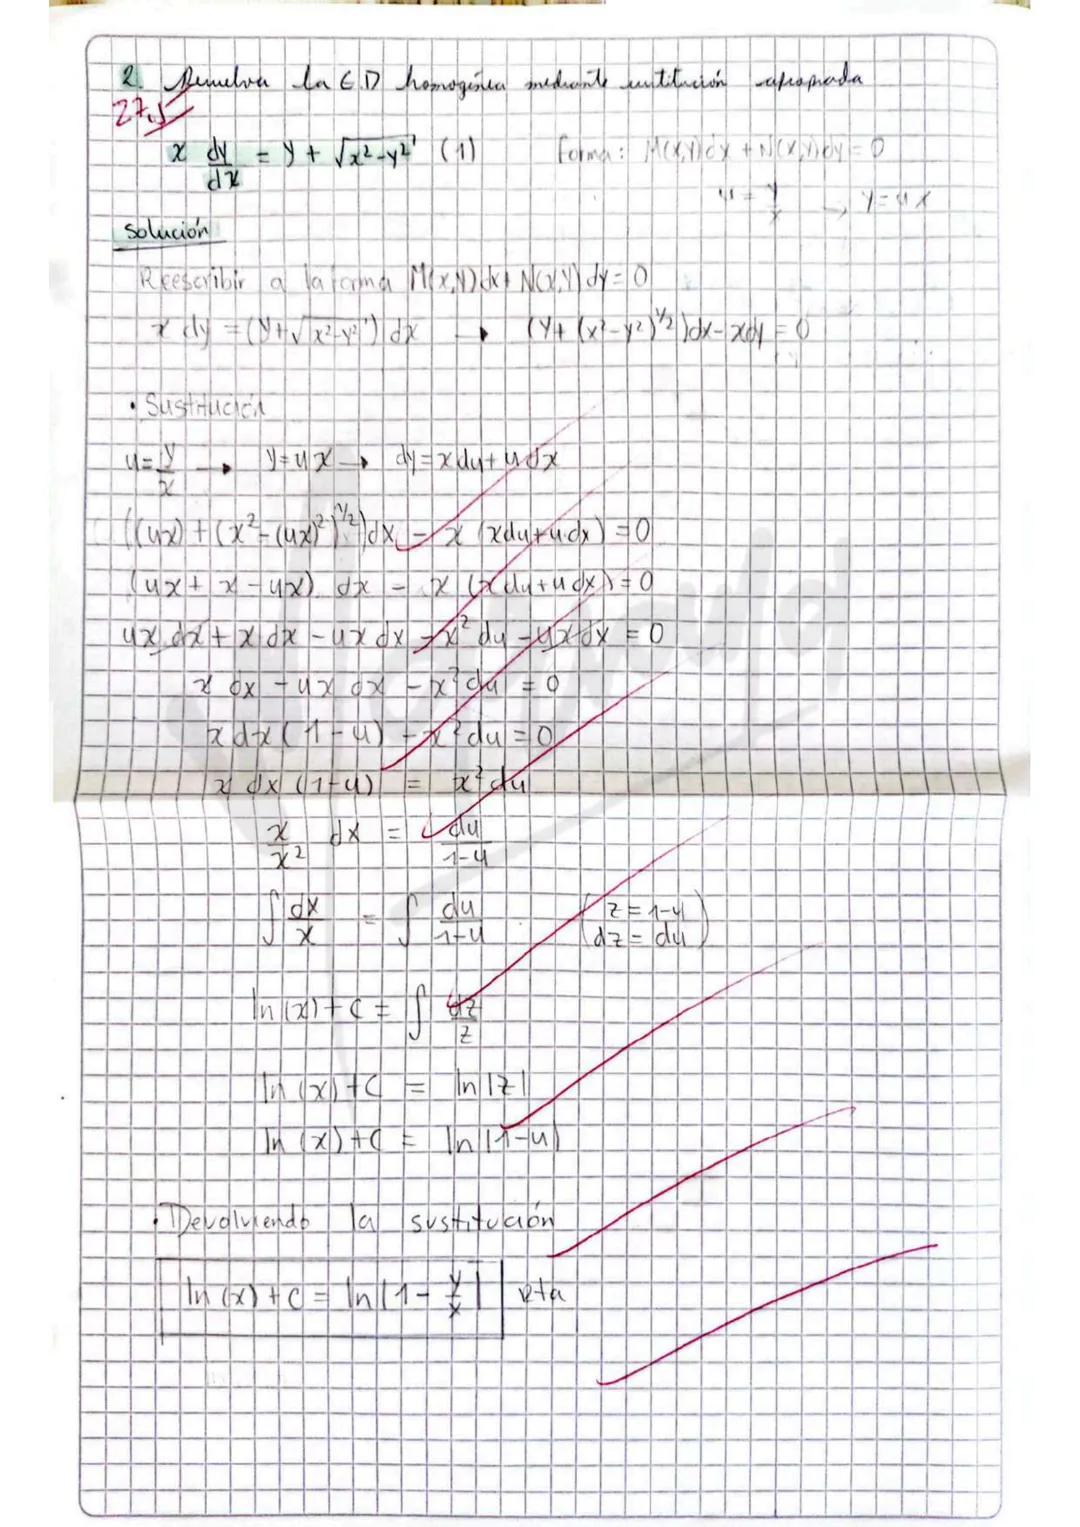 2. Resuelva la E.D homogénea mediante sustitución apropiada
27,5
x dy/dx = y + √(x²-y²) (1) Forma: M(x,y)dx + N(x,y)dy = 0
u = y/x → y=ux
Solución
Reescribir a la forma M(x,y)dx + N(x,y)dy = 0
x dy = (y+√(x²-y²)) dx → (y+(x²-y²)^1/2)dx - xdy = 0
• Sustitución
u = y/x → y=ux → dy = xdu + udx
((ux) + (x²-(ux)²)^1/2)dx - x (xdu+udx) = 0
(ux + x - ux) dx - x (xdu+udx) = 0
ux dx + x dx - ux dx - x² du - ux dx = 0
x dx - ux dx - x² du = 0
x dx (1-u) - x² du = 0
x dx (1-u) = x² du
x/x² dx = du/1-u
∫ dx/x = ∫ du/1-u (z = 1-u
dz = du)
ln(x)+c = ∫ dz/z
ln (x)+c = ln|z|
ln (x)+c = ln|1-u|
• Devolviendo la sustitución
ln (x)+c = ln|1- y/x| Rta